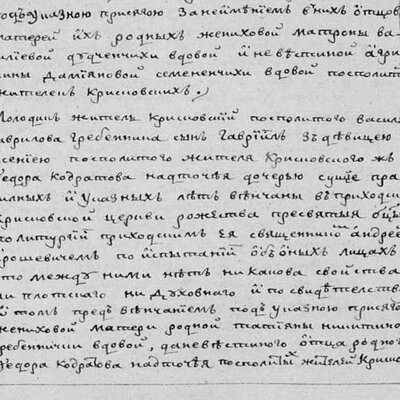 подъ указною присягою занеимѣнiемъ въ нихъ отцовъ
матерей ихъ родныхъ жениховой матроны ва
илiевой вдовой и невѣстиной агри
ины семененчихи вдовой посполит
жителей Крисковскихъ.
Молодикъ житель Крисковскiй посполитого васил
аврилова гребенника сынъ гаврiилъ зъ дѣвицею
сенiею посполитого жителя Крисковского жъ
Федора Кодратова надточѣя дочерью суще пра
илныхъ и указныхъ лѣтъ вѣнчаны въ приходс
Крисковской церкви рожества пресвятыя бцы
политургiи приходскимъ ея священникомъ андрее
рошевичемъ по испытанiи объ оныхъ лицахъ
что между ними нѣтъ ни какова свойства
ни плотскаго ни духовнаго и по свидѣтелств
и томъ предъ вѣнчанiемъ подъ указною присяго
жениховой матери родной татiяны никитино
гребенички вдовой, да невѣстиного отца родног
Федора Кодратова надточѣя посполитыхъ жителей Криско